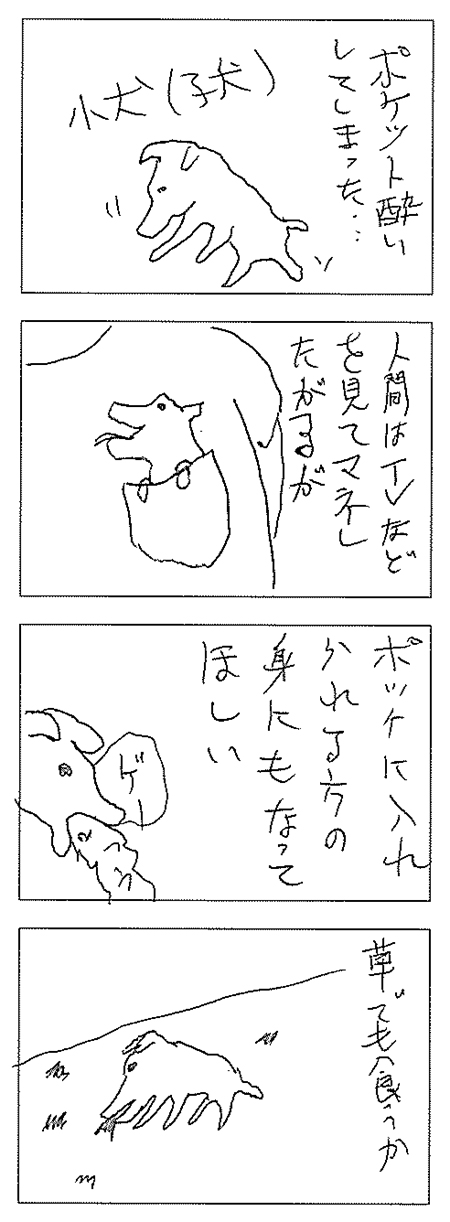 ポケット酔い
してしまった…
小犬(子犬)
人間はTVなど
を見てマネし
たがるが
ポッケに入れ
られる方の
身にもなって
ほしい
ゲー
草でも食うか